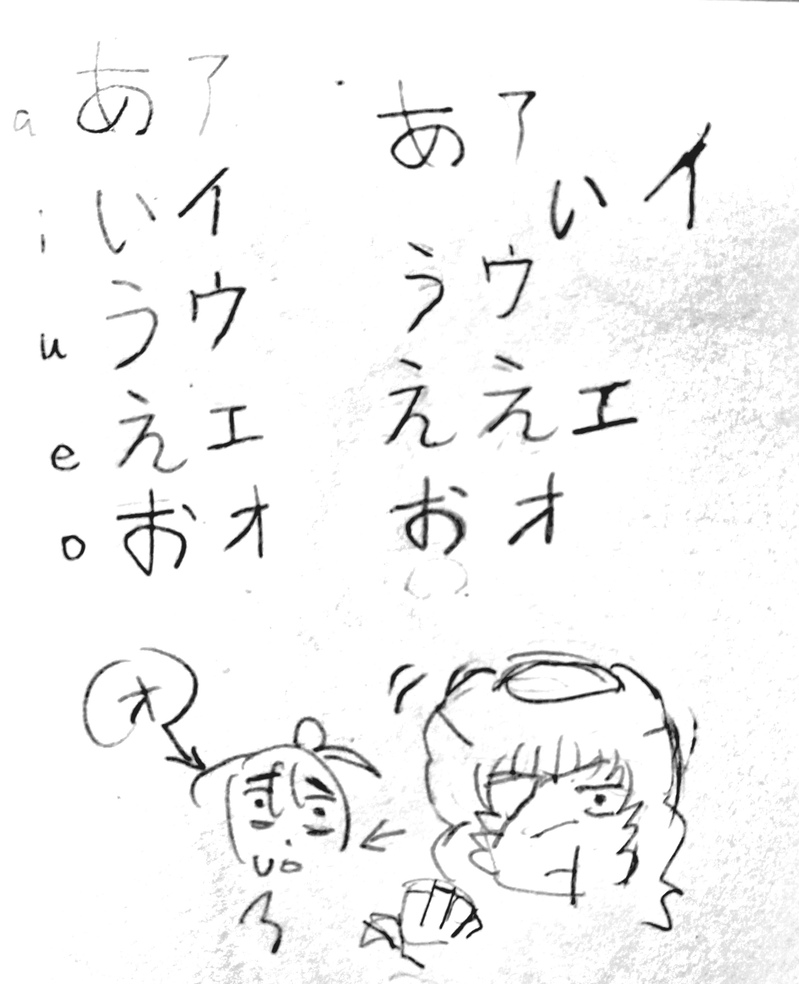 a あ ア
i い イ
u う ウ
e え エ
o お オ
あ ア
い イ
う ウ
え え エ
お オ
オ